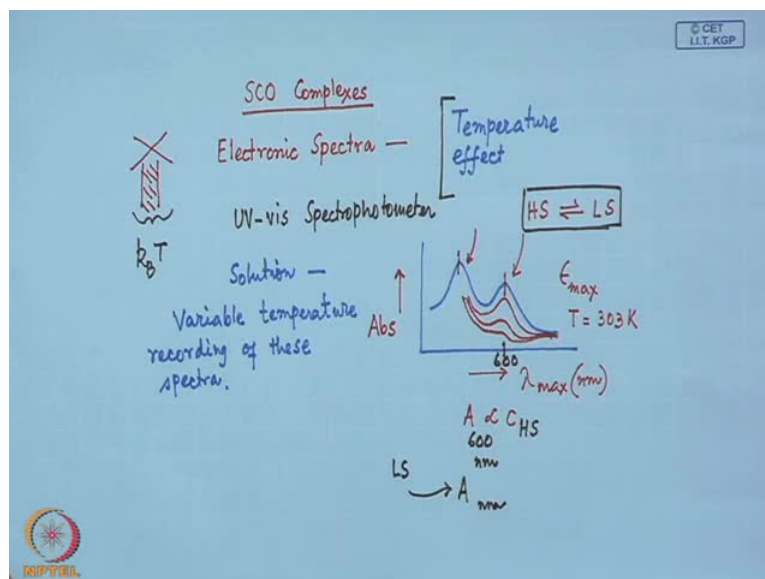 © CET
I.I.T. KGP
SCO Complexes
Electronic Spectra —
Temperature
effect
UV-vis Spectrophotometer
HS ⇌ LS
k_B T
Solution —
Variable temperature
recording of these
spectra.
Abs
ϵ_max
T = 303 K
600
λ_max (nm)
A ∝ C_HS
600
nm
LS
A
nm
NPTEL